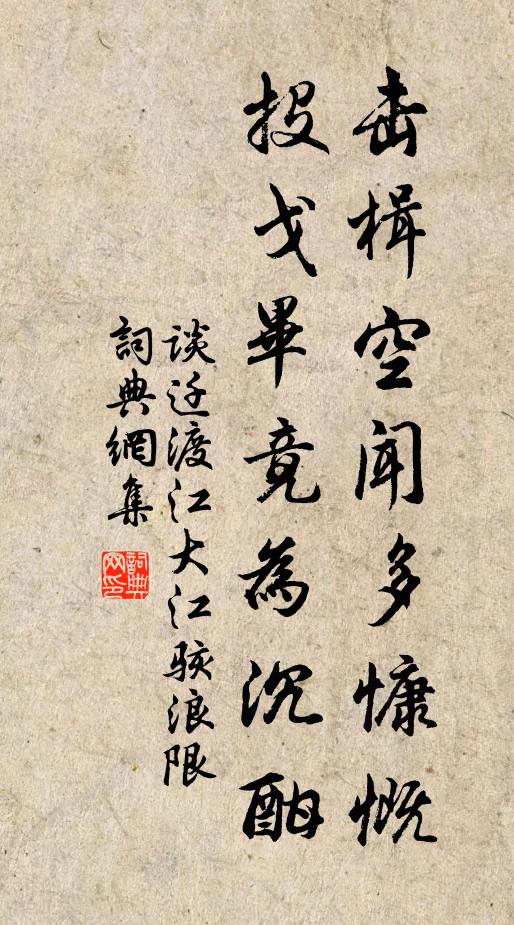 击楫空闻多慷慨
投戈毕竟为沉酣
谈迁渡江大江骇浪限
词典网集
词典网印